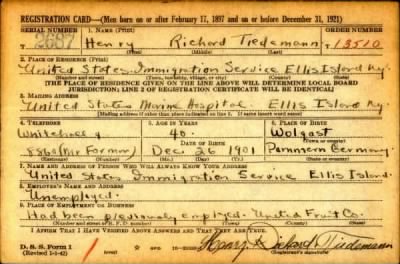 REGISTRATION CARD—(Men born on or after February 17, 1897 and on or before December 31, 1921)
SERIAL NUMBER 1. NAME (Print) ORDER NUMBER
2687 Henry Richard Tiedemann 13510
(First) (Middle) (Last)
2. PLACE OF RESIDENCE (Print)
United States Immigration Service Ellis Island Ny.
(Number and street) (Town, township, village, or city) (County) (State)
[THE PLACE OF RESIDENCE GIVEN ON THE LINE ABOVE WILL DETERMINE LOCAL BOARD
JURISDICTION; LINE 2 OF REGISTRATION CERTIFICATE WILL BE IDENTICAL]
3. MAILING ADDRESS
United States Marine Hospital. Ellis Island Ny.
[Mailing address if other than place indicated on line 2. If same insert word same]
4. TELEPHONE 5. AGE IN YEARS 6. PLACE OF BIRTH
Whitehall 4 40. Wolgast
DATE OF BIRTH (Town or county)
8860 Dec 26 1901 Pommern Germany
(Exchange) (Number) (Mo.) (Day) (Yr.) (State or country)
7. NAME AND ADDRESS OF PERSON WHO WILL ALWAYS KNOW YOUR ADDRESS
United States Immigration Service Ellis Island.
8. EMPLOYER'S NAME AND ADDRESS
Unemployed.
9. PLACE OF EMPLOYMENT OR BUSINESS
Had been previously employed. United Fruit Co.
(Number and street or R. F. D. number) (Town) (County) (State)
I AFFIRM THAT I HAVE VERIFIED ABOVE ANSWERS AND THAT THEY ARE TRUE.
D. S. S. Form 1
(Revised 1-1-42) (over) Henry Richard Tiedemann
(Registrant's signature)